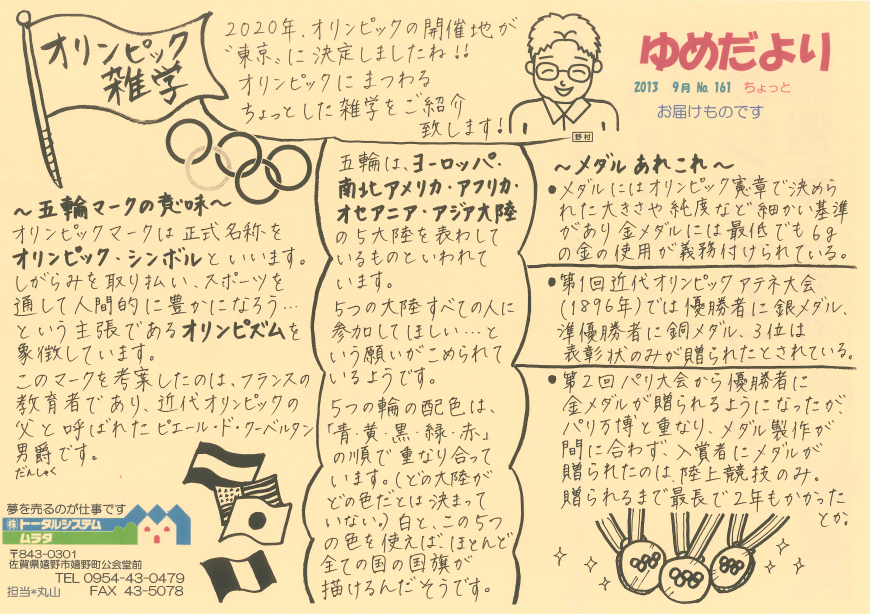 オリンピック
雑学
2020年、オリンピックの開催地が
"東京"に決定しましたね!!
オリンピックにまつわる
ちょっとした雑学をご紹介
致します!
野村
ゆめだより
2013 9月 No.161 ちょっと
お届けものです
～五輪マークの意味～
オリンピックマークは正式名称を
オリンピック・シンボルといいます。
しがらみを取り払い、スポーツを
通して人間的に豊かになろう…
という主張であるオリンピズムを
象徴しています。
このマークを考案したのは、フランスの
教育者であり、近代オリンピックの
父と呼ばれたピエール・ド・クーベルタン
男爵です。
だんしゃく
五輪は、ヨーロッパ・
南北アメリカ・アフリカ・
オセアニア・アジア大陸
の5大陸を表わして
いるものといわれて
います。
5つの大陸すべての人に
参加してほしい…と
いう願いがこめられて
いるようです。
5つの輪の配色は、
「青・黄・黒・緑・赤」
の順で重なり合って
います。(どの大陸が
どの色だとは決まって
いない。)白と、この5つ
の色を使えば、ほとんど
全ての国の国旗が
描けるんだそうです。
～メダルあれこれ～
•メダルにはオリンピック憲章で決めら
れた大きさや純度など細かい基準
があり金メダルには最低でも6g
の金の使用が義務付けられている。
•第1回近代オリンピックアテネ大会
(1896年)では優勝者に銀メダル、
準優勝者に銅メダル、3位は
表彰状のみが贈られたとされている。
•第2回パリ大会から優勝者に
金メダルが贈られるようになったが、
パリ万博と重なり、メダル製作が
間に合わず、入賞者にメダルが
贈られたのは、陸上競技のみ。
贈られるまで最長で2年もかかった
とか。
夢を売るのが仕事です
㈱トータルシステム
ムラタ
〒843-0301
佐賀県嬉野市嬉野町公会堂前
TEL 0954-43-0479
担当*丸山 FAX 43-5078